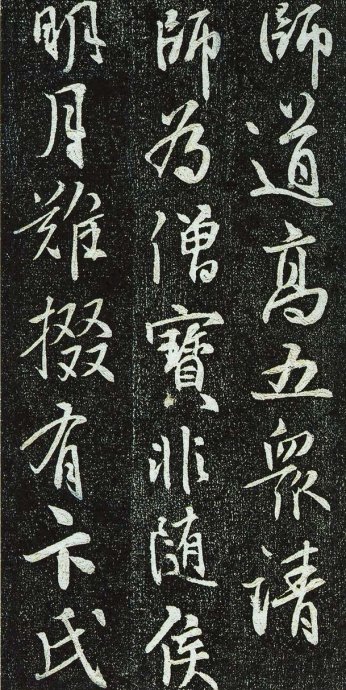 師道高五眾請
師為僧寶非随侯
明月難掇有卞氏